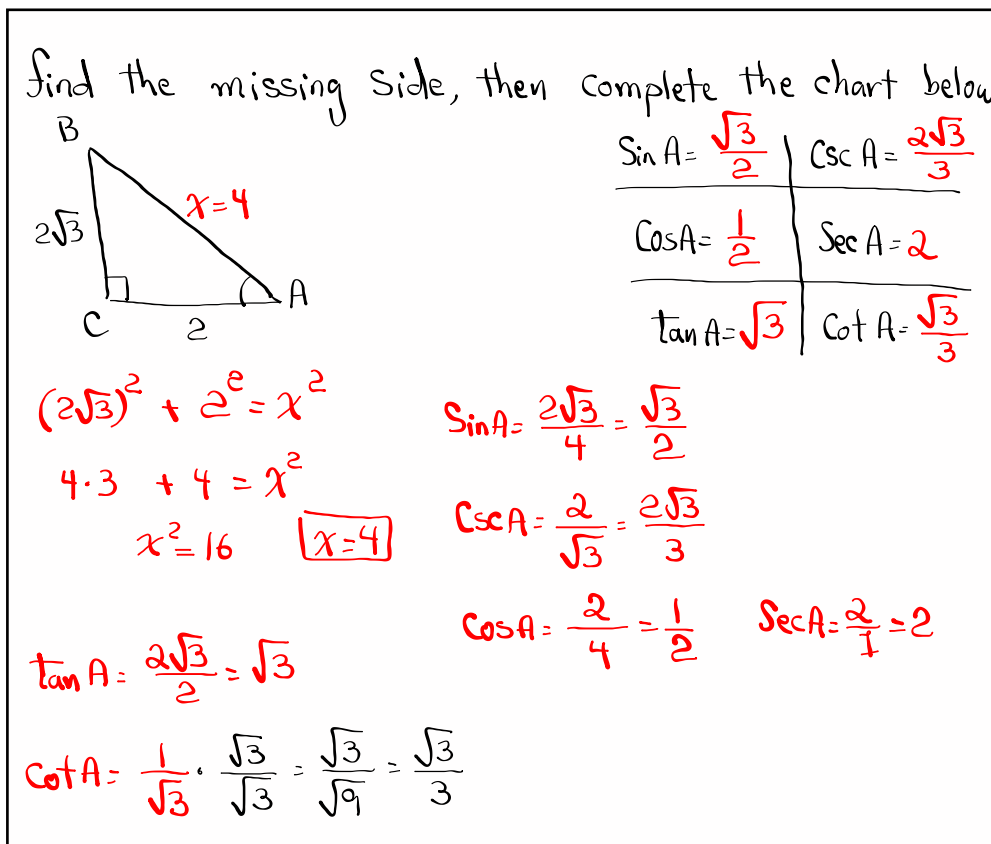 find the missing side, then complete the chart below
B
2√3
x=4
C
2
A
Sin A= √3/2 | Csc A= 2√3/3
CosA= 1/2 | Sec A= 2
tan A= √3 | Cot A= √3/3
(2√3)² + 2² = x²
4·3 + 4 = x²
x²=16 x=4
SinA= 2√3/4 = √3/2
CscA= 2/√3 = 2√3/3
CosA= 2/4 = 1/2 SecA= 2/1 =2
tan A= 2√3/2 = √3
CotA= 1/√3 · √3/√3 = √3/√9 = √3/3